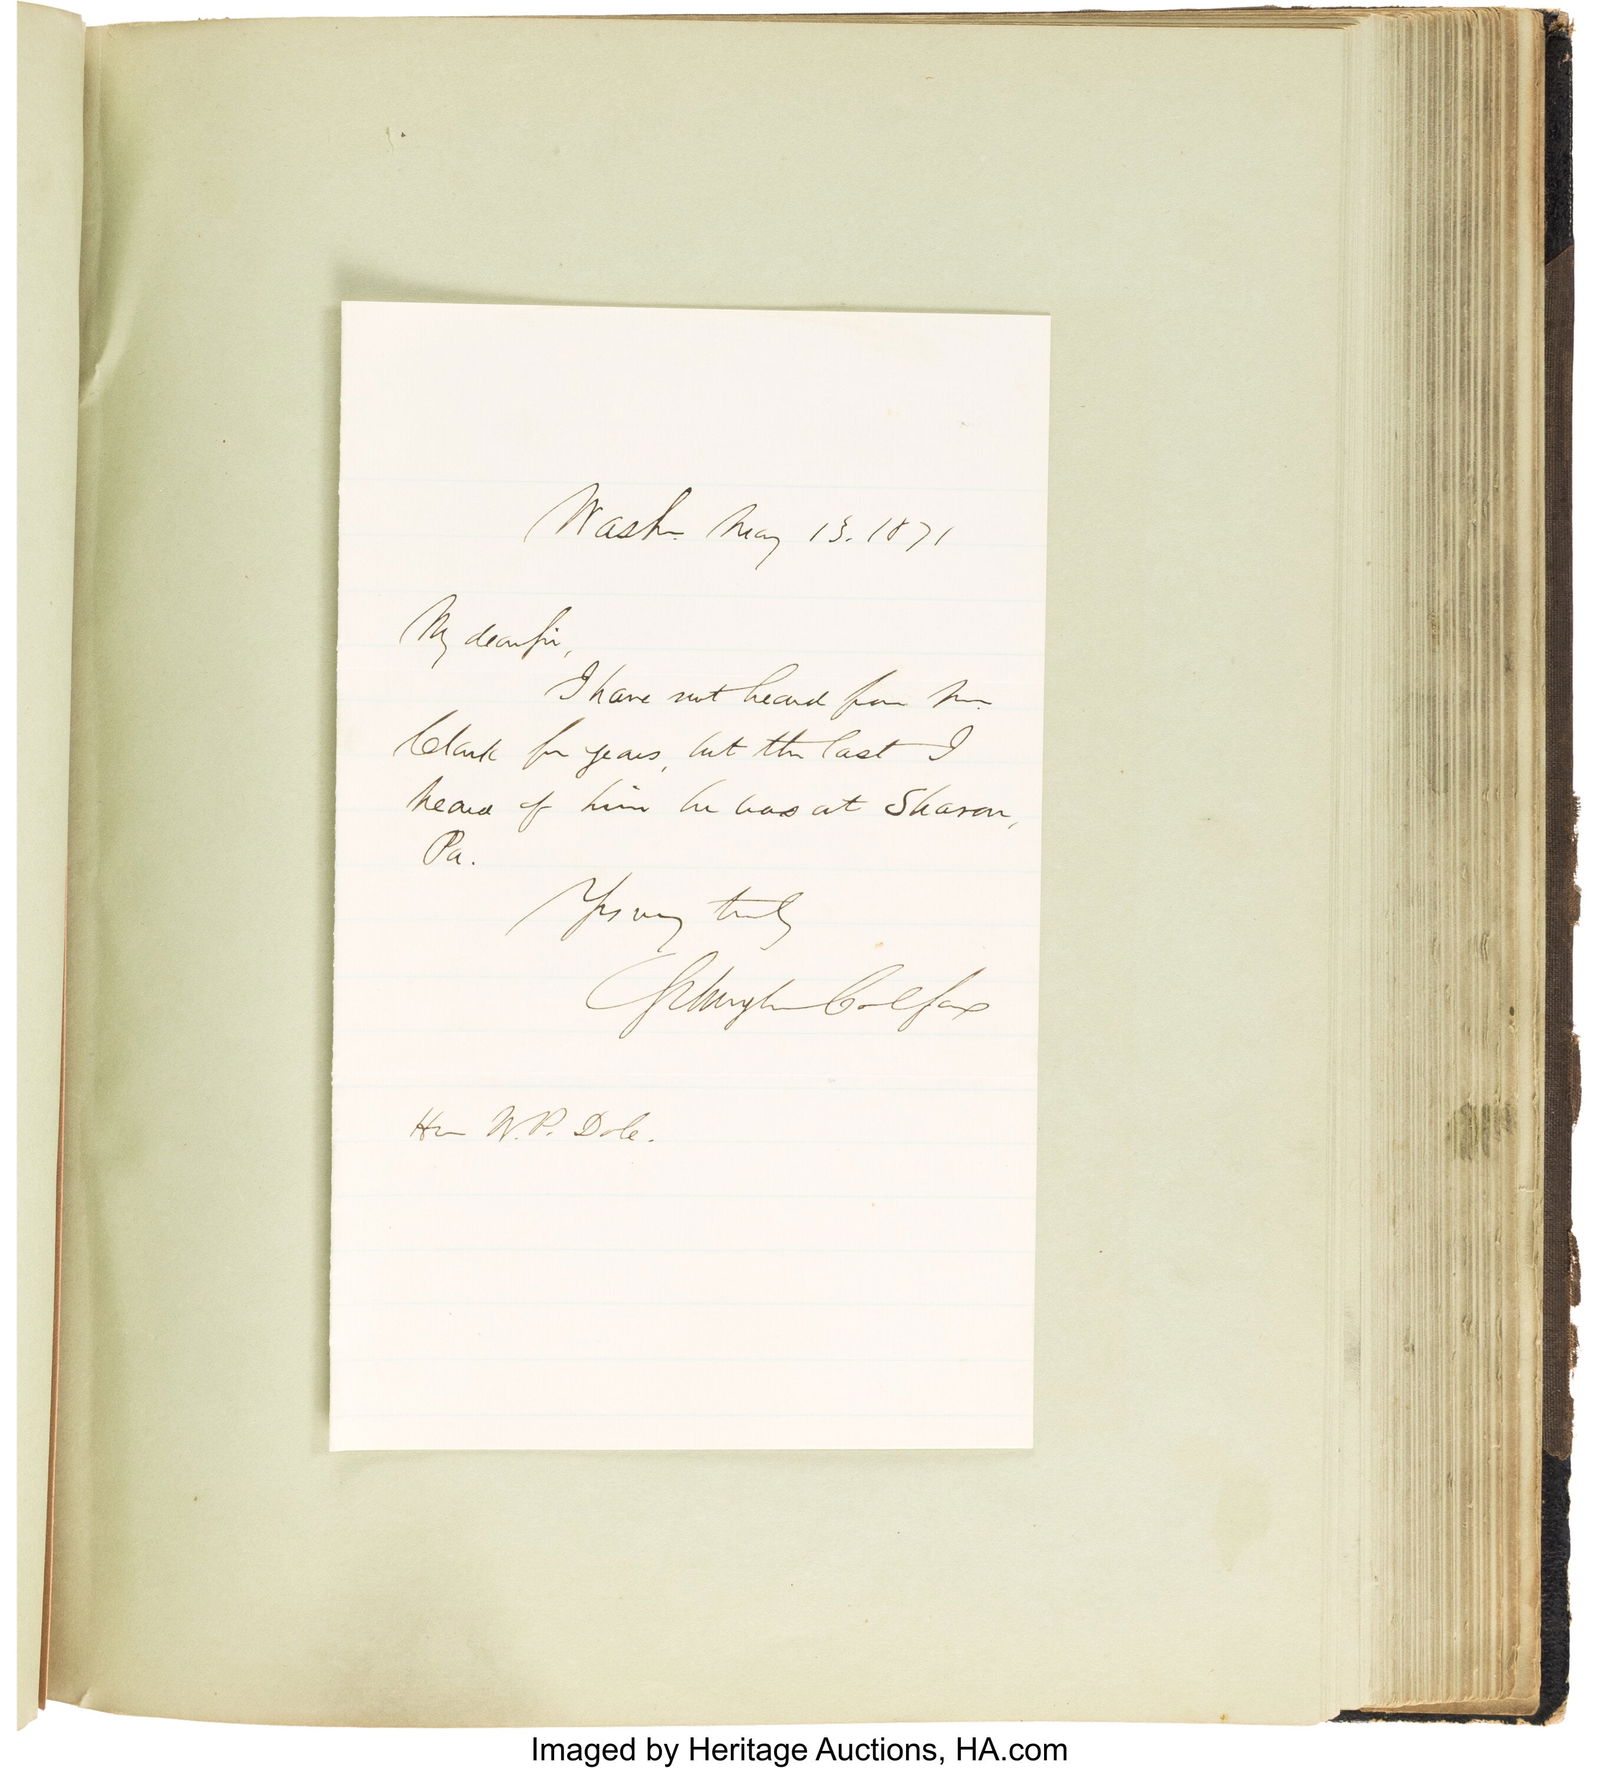 Wash. May 13. 1871
My dear sir,
I have not heard from Mr.
Clark for years, but the last I
heard of him he was at Sharon,
Pa.
Yrs very truly
Schuyler Colfax
Hon W. P. Dole.
Imaged by Heritage Auctions, HA.com